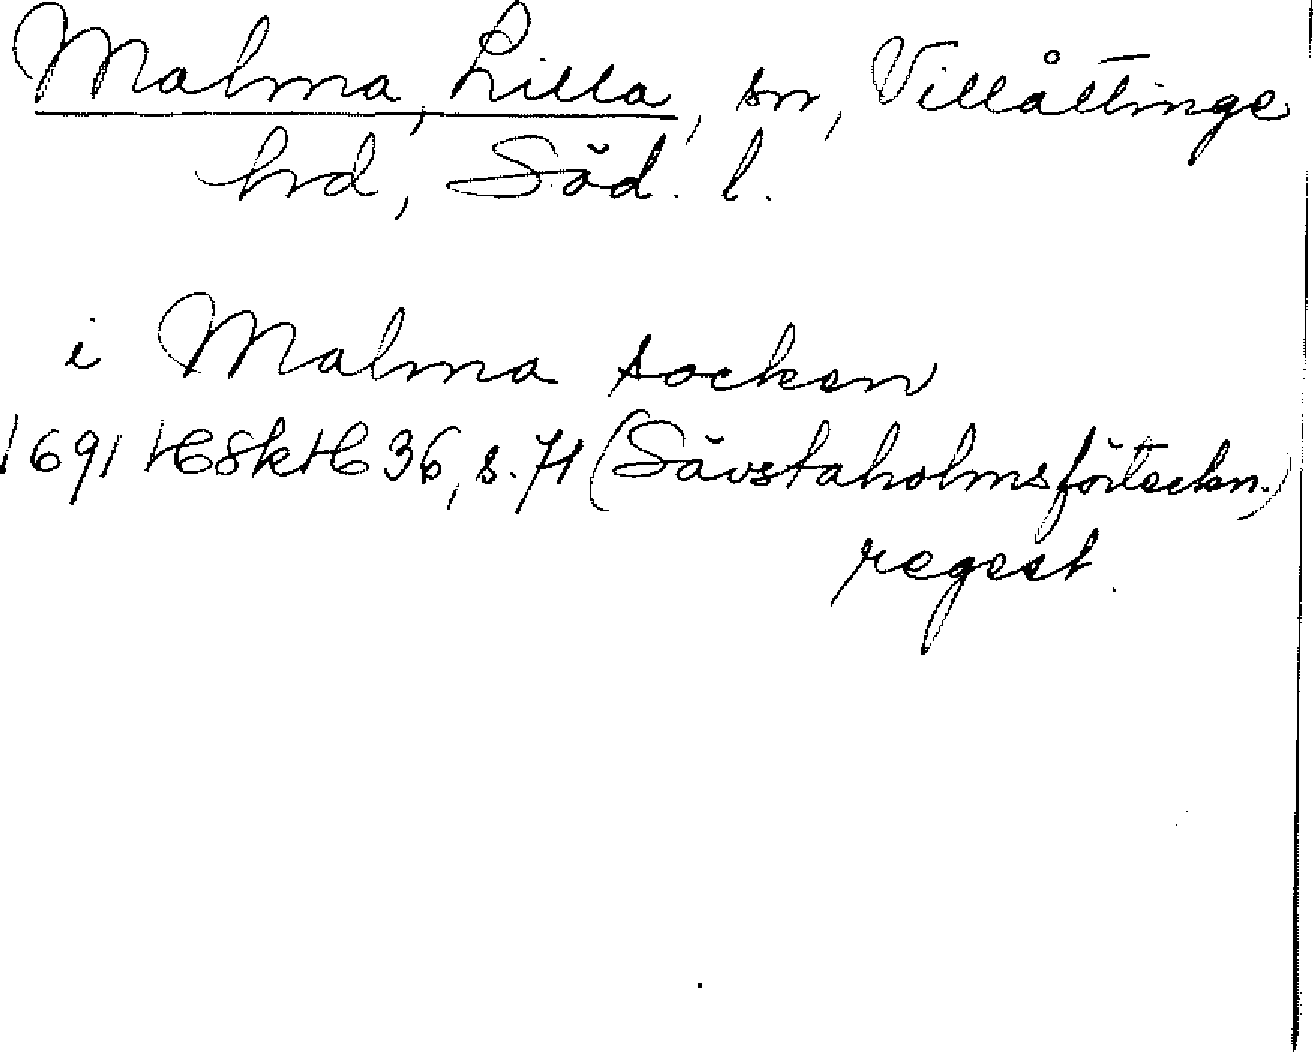 Malma, Lilla, sn, Villåttinge
hrd, Söd. l.
i Malma socken
1691 HSkH 36, s. 71 (Sävstaholmsförteckn.)
regest.